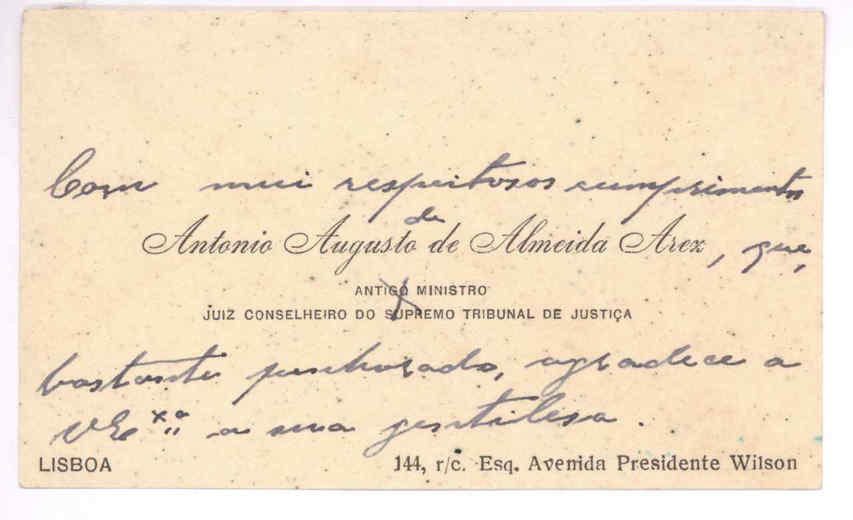 Com mui respeitosos cumprimentos
de
Antonio Augusto de Almeida Arez, que,
ANTIGO MINISTRO
JUIZ CONSELHEIRO DO SUPREMO TRIBUNAL DE JUSTIÇA
bastante penhorado, agradece a
V E xª a sua gentilesa.
LISBOA
144, r/c. Esq. Avenida Presidente Wilson